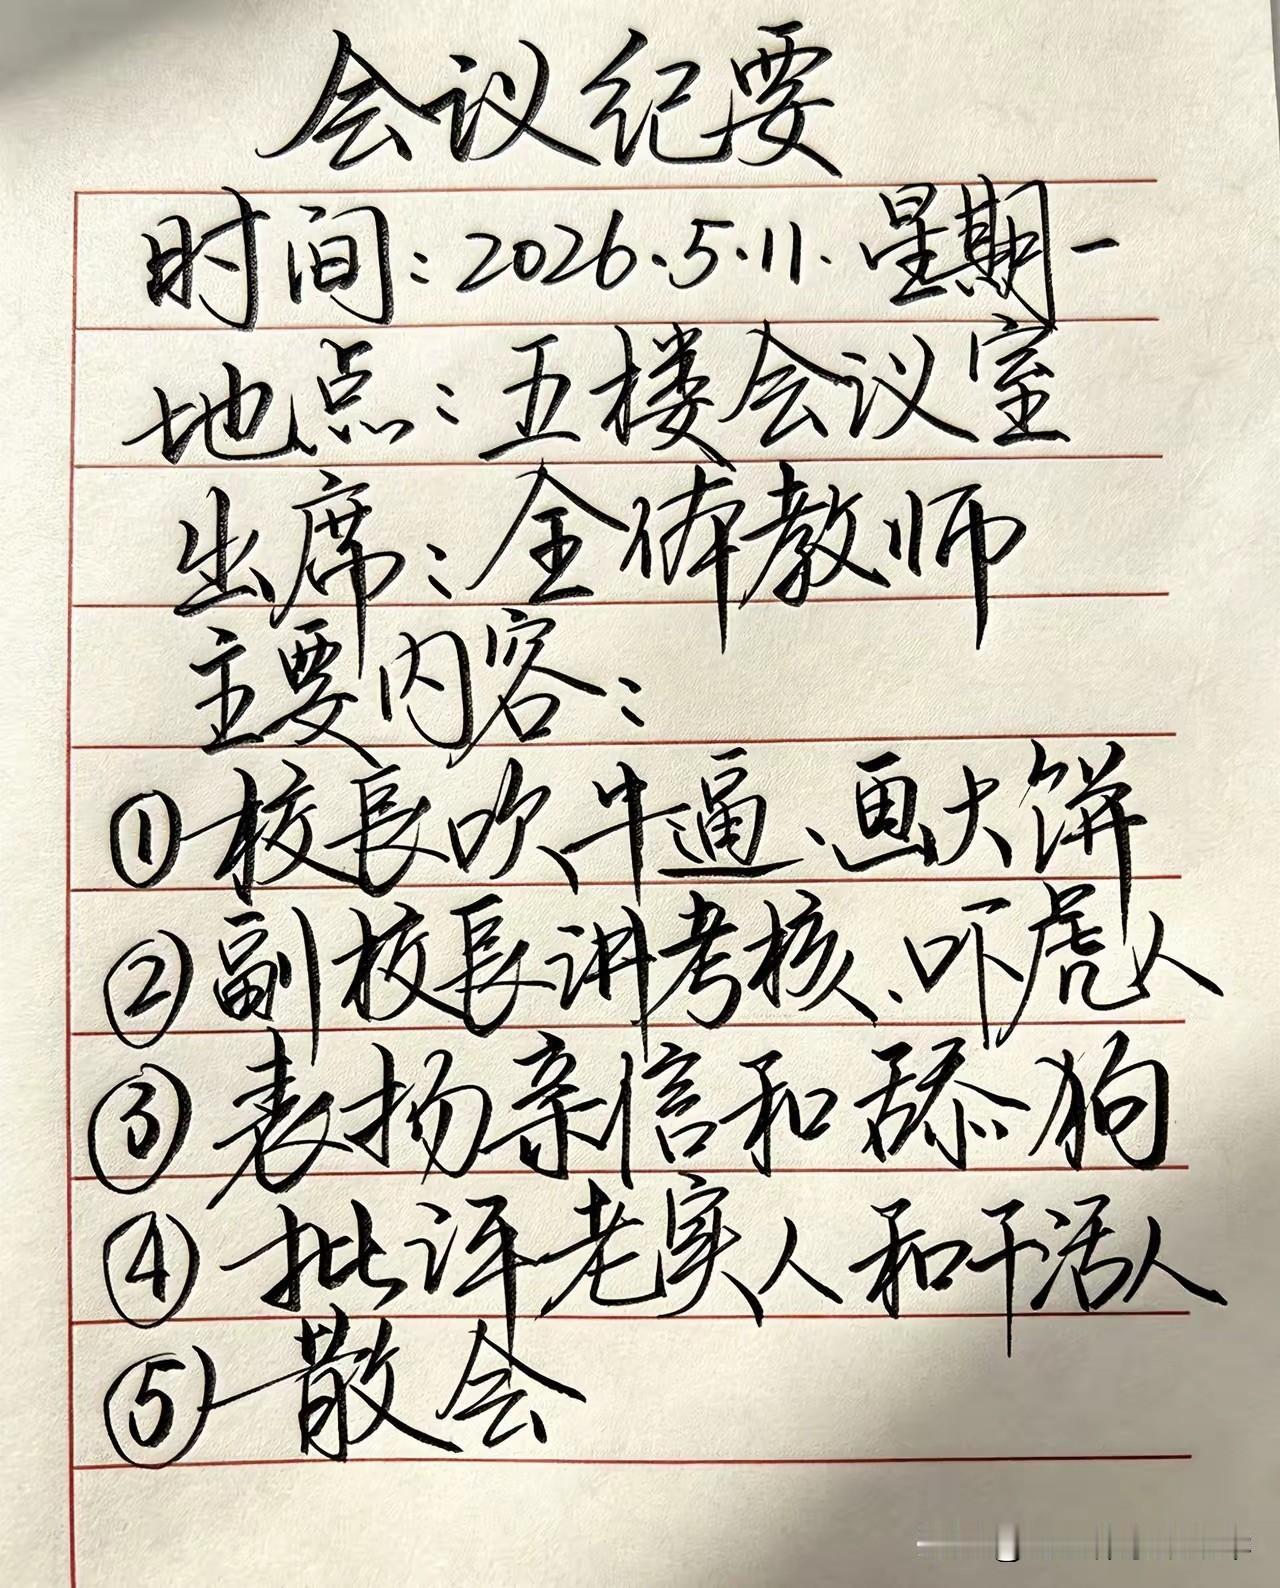 会议纪要
时间：2026.5.11.星期一
地点：五楼会议室
出席：全体教师
主要内容：
①校長吹牛逼、画大饼
②副校長讲考核、吓虎人
③表扬亲信和舔狗
④批评老实人和干活人
⑤散会